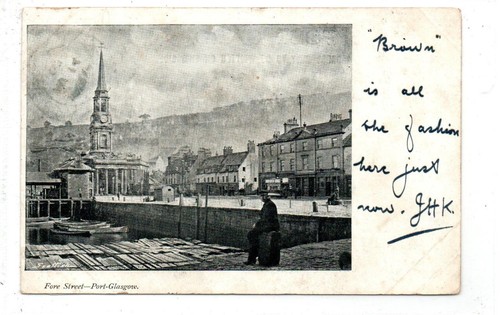 "Brown"
is all
the fashion
here just
now. JHK.
Fore Street—Port-Glasgow.